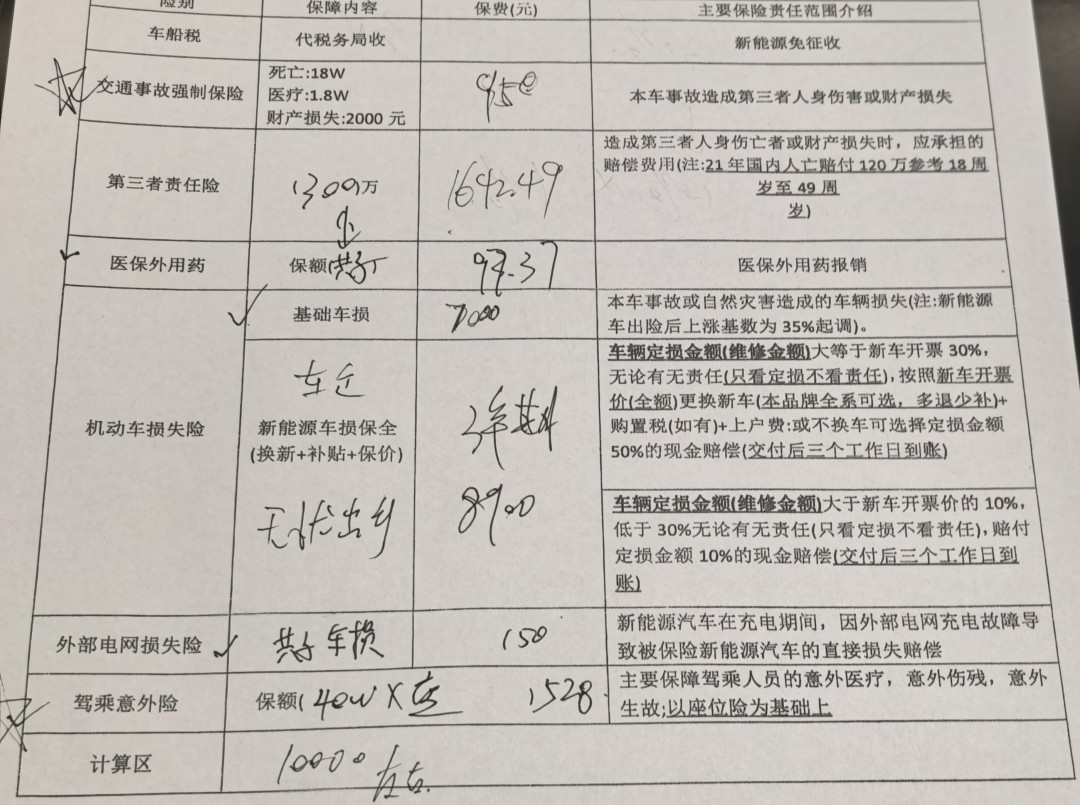 险别 保障内容 保费(元) 主要保险责任范围介绍
车船税 代税务局收 新能源免征收
交通事故强制保险
死亡:18W
医疗:1.8W
财产损失:2000 元
950
本车事故造成第三者人身伤害或财产损失
第三者责任险
300万
1642.49
造成第三者人身伤亡者或财产损失时，应承担的
赔偿费用(注:21 年国内人亡赔付 120 万参考 18 周
岁至 49 周
岁)
医保外用药 保额(
医保外用药报销
机动车损失险
基础车损
7000
本车事故或自然灾害造成的车辆损失(注:新能源
车出险后上涨基数为 35%起调)。
新能源车损保全
(换新+补贴+保价)
无忧出
8900
车辆定损金额(维修金额)大等于新车开票 30%，
无论有无责任(只看定损不看责任),按照新车开票
价(全额)更换新车(本品牌全系可选，多退少补)+
购置税(如有)+上户费:或不换车可选择定损金额
50%的现金赔偿(交付后三个工作日到账)
车辆定损金额(维修金额)大于新车开票价的 10%，
低于 30%无论有无责任(只看定损不看责任)，赔付
定损金额 10%的现金赔偿(交付后三个工作日到
账)
外部电网损失险
车损
150
新能源汽车在充电期间，因外部电网充电故障导
致被保险新能源汽车的直接损失赔偿
驾乘意外险
保额( 40W X
1528
主要保障驾乘人员的意外医疗，意外伤残，意外
生故;以座位险为基础上
计算区
10000 左右.